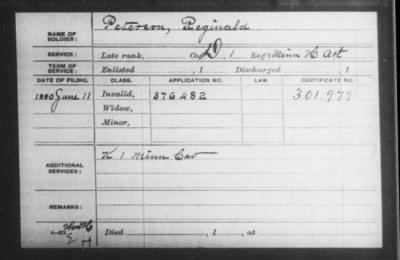 NAME OF SOLDIER: Peterson, Reginald
SERVICE: Late rank, Co. D, 1 Reg't Minn H Art
TERM OF SERVICE: Enlisted , 1 Discharged , 1
DATE OF FILING. CLASS. APPLICATION NO. LAW. CERTIFICATE NO.
1880 June 11 Invalid, 376482 301.979
Widow,
Minor,
ADDITIONAL SERVICES: K 1 Minn Cav
REMARKS:
Died , 1 , at